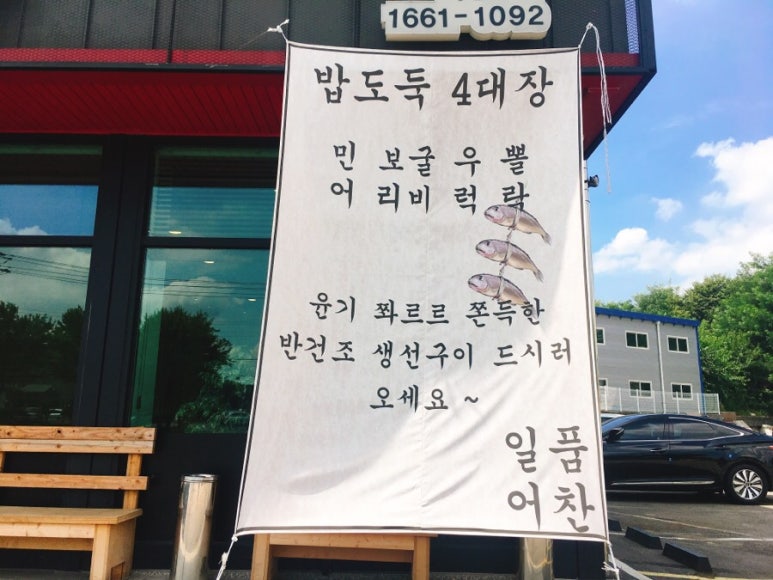 1661-1092
밥도둑 4대장
민 보굴 우 뽈
어 리비 럭 락
윤기 쫘르르 쫀득한
반건조 생선구이 드시러
오세요 ~
일품
어찬